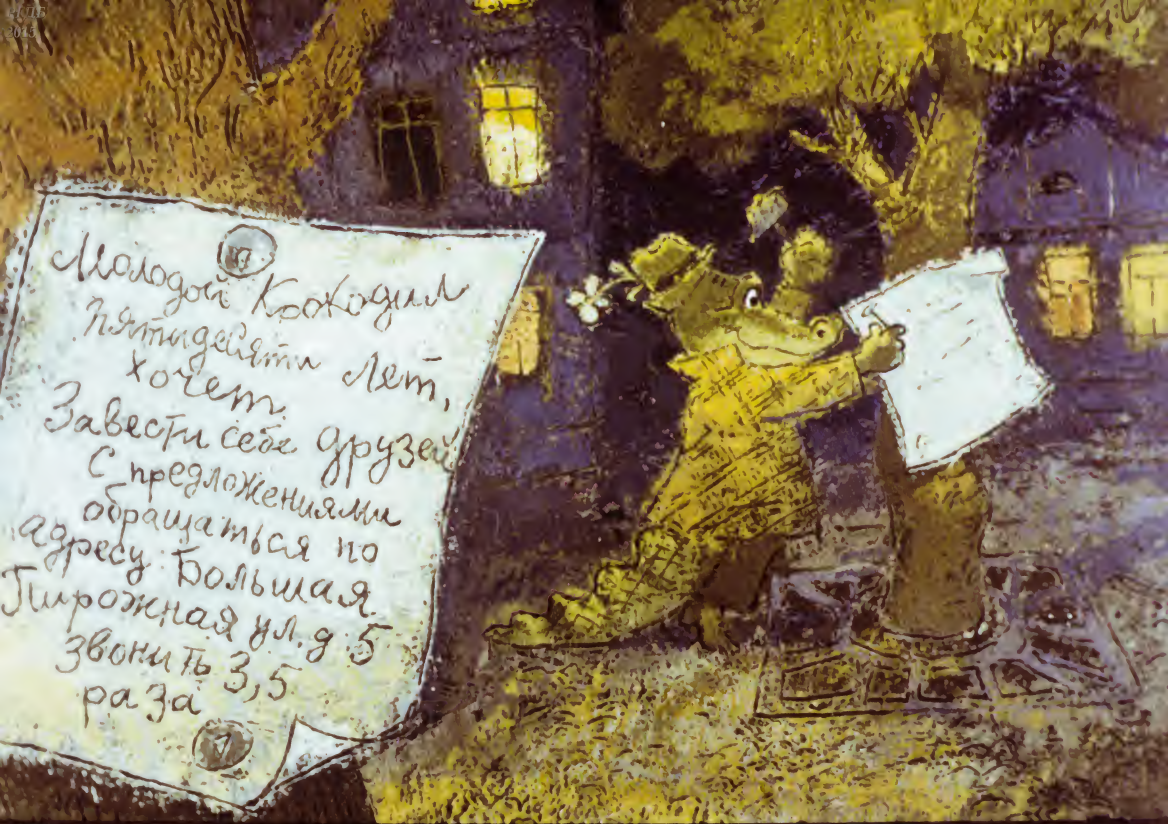 Молодой Крокодил
пятидесяти лет,
хочет
Завести себе друзей
С предложениями
обращаться по
адресу: Большая
Пирожная ул. д. 5
звонить 3,5
раза